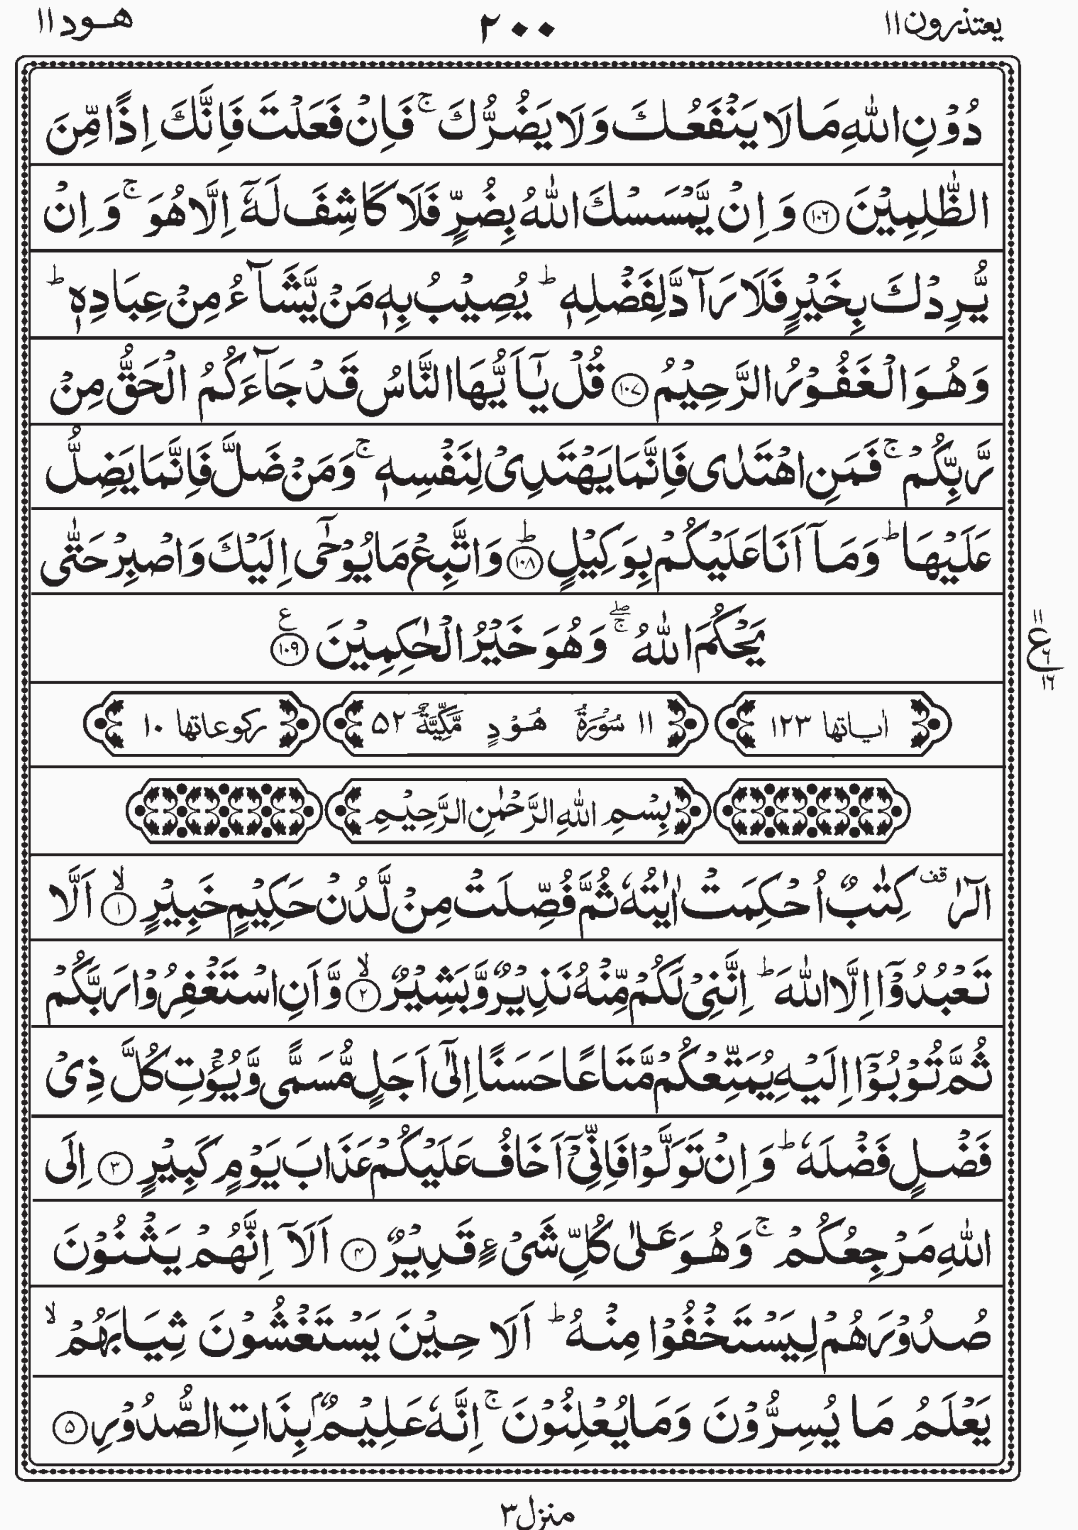 یعتذرون ۱۱
۲۰۰
هود ۱۱
دُوْنِ اللّٰهِ مَا لَا یَنْفَعُكَ وَ لَا یَضُرُّكَ ۚ فَاِنْ فَعَلْتَ فَاِنَّكَ اِذًا مِّنَ
الظّٰلِمِیْنَ ۱۰۶ وَ اِنْ یَّمْسَسْكَ اللّٰهُ بِضُرٍّ فَلَا كَاشِفَ لَهٗۤ اِلَّا هُوَ ۚ وَ اِنْ
یُّرِدْكَ بِخَیْرٍ فَلَا رَآدَّ لِفَضْلِهٖ ؕ یُصِیْبُ بِهٖ مَنْ یَّشَآءُ مِنْ عِبَادِهٖ ؕ
وَ هُوَ الْغَفُوْرُ الرَّحِیْمُ ۱۰۷ قُلْ یٰۤاَیُّهَا النَّاسُ قَدْ جَآءَكُمُ الْحَقُّ مِنْ
رَّبِّكُمْ ۚ فَمَنِ اهْتَدٰی فَاِنَّمَا یَهْتَدِیْ لِنَفْسِهٖ ۚ وَ مَنْ ضَلَّ فَاِنَّمَا یَضِلُّ
عَلَیْهَا ؕ وَ مَاۤ اَنَا عَلَیْكُمْ بِوَكِیْلٍ ؕ ۱۰۸ وَ اتَّبِعْ مَا یُوْحٰۤی اِلَیْكَ وَ اصْبِرْ حَتّٰی
یَحْكُمَ اللّٰهُ ۖۚ وَ هُوَ خَیْرُ الْحٰكِمِیْنَ ۱۰۹ ع
ع ۱۱ ۶ ۱۶
اٰیاتها ۱۲۳ ۱۱ سُوْرَةُ هُوْدٍ مَّكِّیَّةٌ ۵۲ ركوعاتها ۱۰
بِسْمِ اللّٰهِ الرَّحْمٰنِ الرَّحِیْمِ
الٓرٰ قف كِتٰبٌ اُحْكِمَتْ اٰیٰتُهٗ ثُمَّ فُصِّلَتْ مِنْ لَّدُنْ حَكِیْمٍ خَبِیْرٍ ۙ ۱ اَلَّا
تَعْبُدُوْۤا اِلَّا اللّٰهَ ؕ اِنَّنِیْ لَكُمْ مِّنْهُ نَذِیْرٌ وَّ بَشِیْرٌ ۙ ۲ وَّ اَنِ اسْتَغْفِرُوْا رَبَّكُمْ
ثُمَّ تُوْبُوْۤا اِلَیْهِ یُمَتِّعْكُمْ مَّتَاعًا حَسَنًا اِلٰۤی اَجَلٍ مُّسَمًّی وَّ یُؤْتِ كُلَّ ذِیْ
فَضْلٍ فَضْلَهٗ ؕ وَ اِنْ تَوَلَّوْا فَاِنِّیْۤ اَخَافُ عَلَیْكُمْ عَذَابَ یَوْمٍ كَبِیْرٍ ۳ اِلَی
اللّٰهِ مَرْجِعُكُمْ ۚ وَ هُوَ عَلٰی كُلِّ شَیْءٍ قَدِیْرٌ ۴ اَلَاۤ اِنَّهُمْ یَثْنُوْنَ
صُدُوْرَهُمْ لِیَسْتَخْفُوْا مِنْهُ ؕ اَلَا حِیْنَ یَسْتَغْشُوْنَ ثِیَابَهُمْ ۙ
یَعْلَمُ مَا یُسِرُّوْنَ وَ مَا یُعْلِنُوْنَ ۚ اِنَّهٗ عَلِیْمٌۢ بِذَاتِ الصُّدُوْرِ ۵
منزل ۳